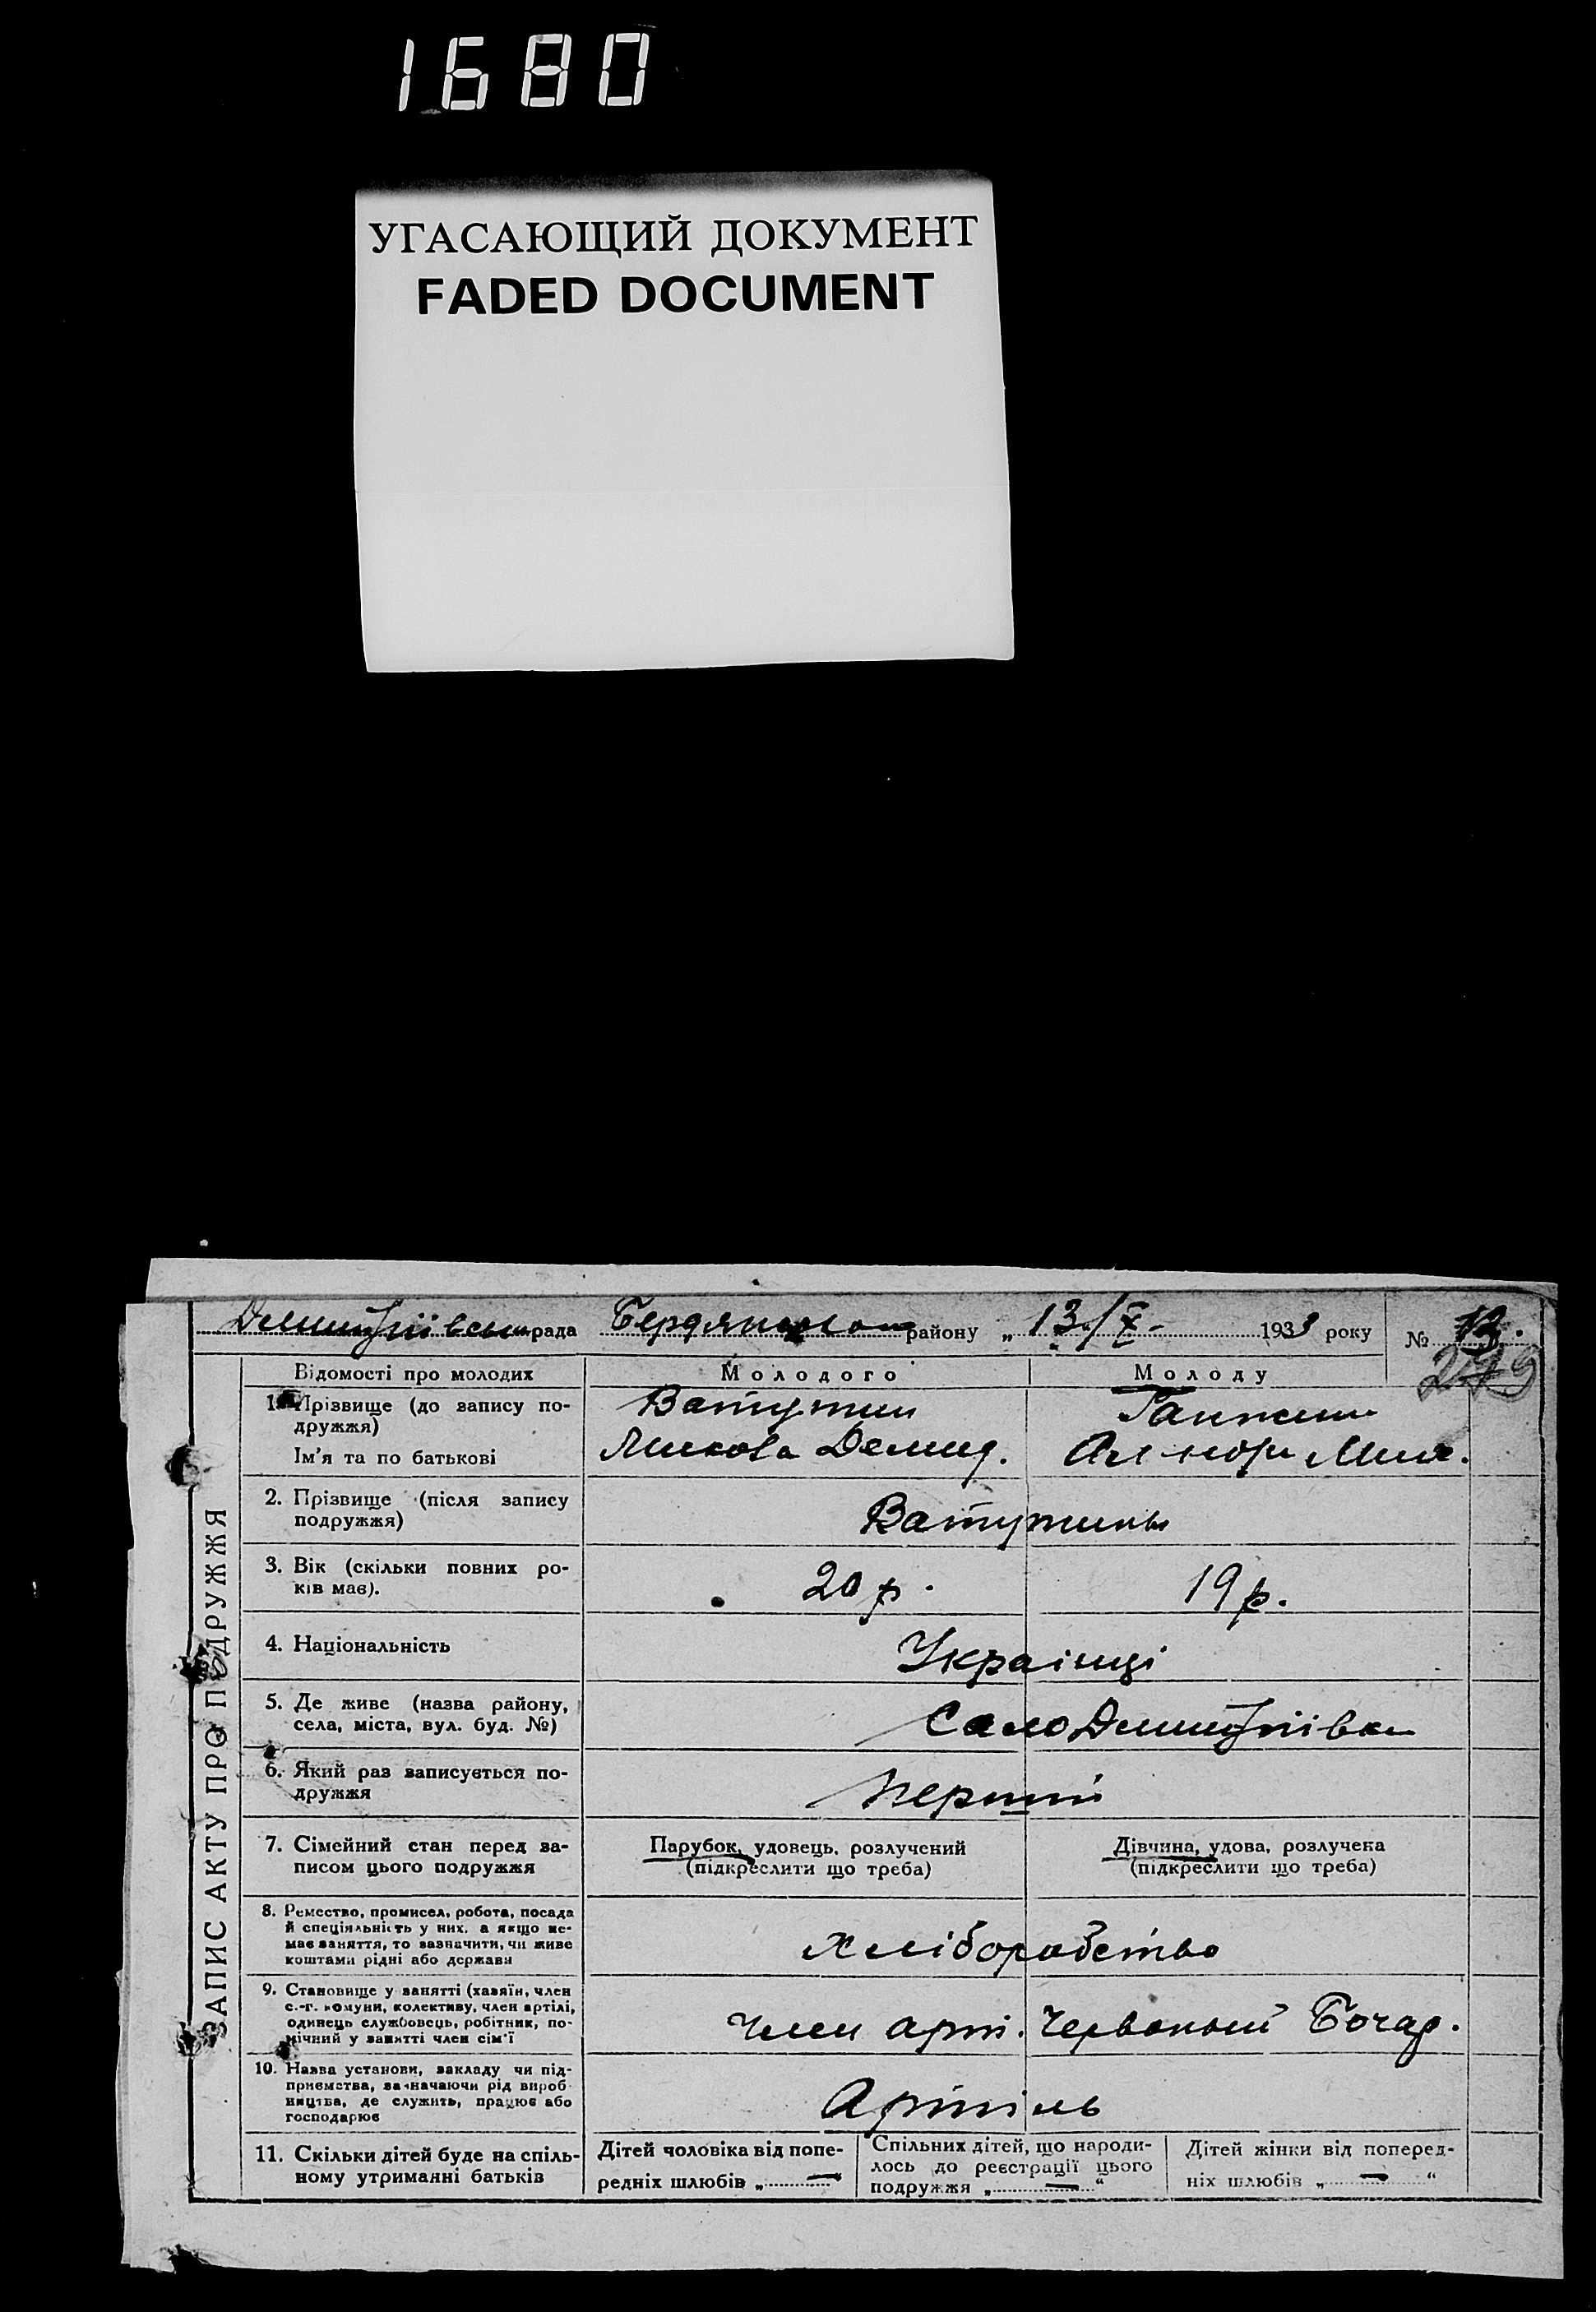 1680
УГАСАЮЩИЙ ДОКУМЕНТ
FADED DOCUMENT
рада району „13/X 1933 року № 13.
279
ЗАПИС АКТУ ПРО ПОДРУЖЖЯ
Відомості про молодих Молодого Молоду
1. Прізвище (до запису по-
дружжя)
Ватутин
Ім'я та по батькові
Микола Демид.
2. Прізвище (після запису
подружжя)
Ватутины
3. Вік (скільки повних ро-
ків має).
20 р. 19 р.
4. Національність
Українці
5. Де живе (назва району,
села, міста, вул. буд. №)
6. Який раз записується по-
дружжя
перший
7. Сімейний стан перед за-
писом цього подружжя
Парубок, удовець, розлучений
(підкреслити що треба)
Дівчина, удова, розлучена
(підкреслити що треба)
8. Ремество, промисел, робота, посада
й спеціяльність у них, а якщо не-
має заняття, то зазначити, чи живе
коштами рідні або держави
хліборобство
9. Становище у занятті (хазяїн, член
с.-г. комуни, колективу, член артілі,
одинець службовець, робітник, по-
мічний у занятті член сім'ї
Член арт. Червоный Бочар.
10. Назва установи, закладу чи під-
приємства, зазначаючи рід вироб-
ництва, де служить, працює або
господарює
Артіль
11. Скільки дітей буде на спіль-
ному утриманні батьків
Дітей чоловіка від попе-
редніх шлюбів „ — “
Спільних дітей, що народи-
лось до реєстрації цього
подружжя „ — “
Дітей жінки від поперед-
ніх шлюбів „ — “